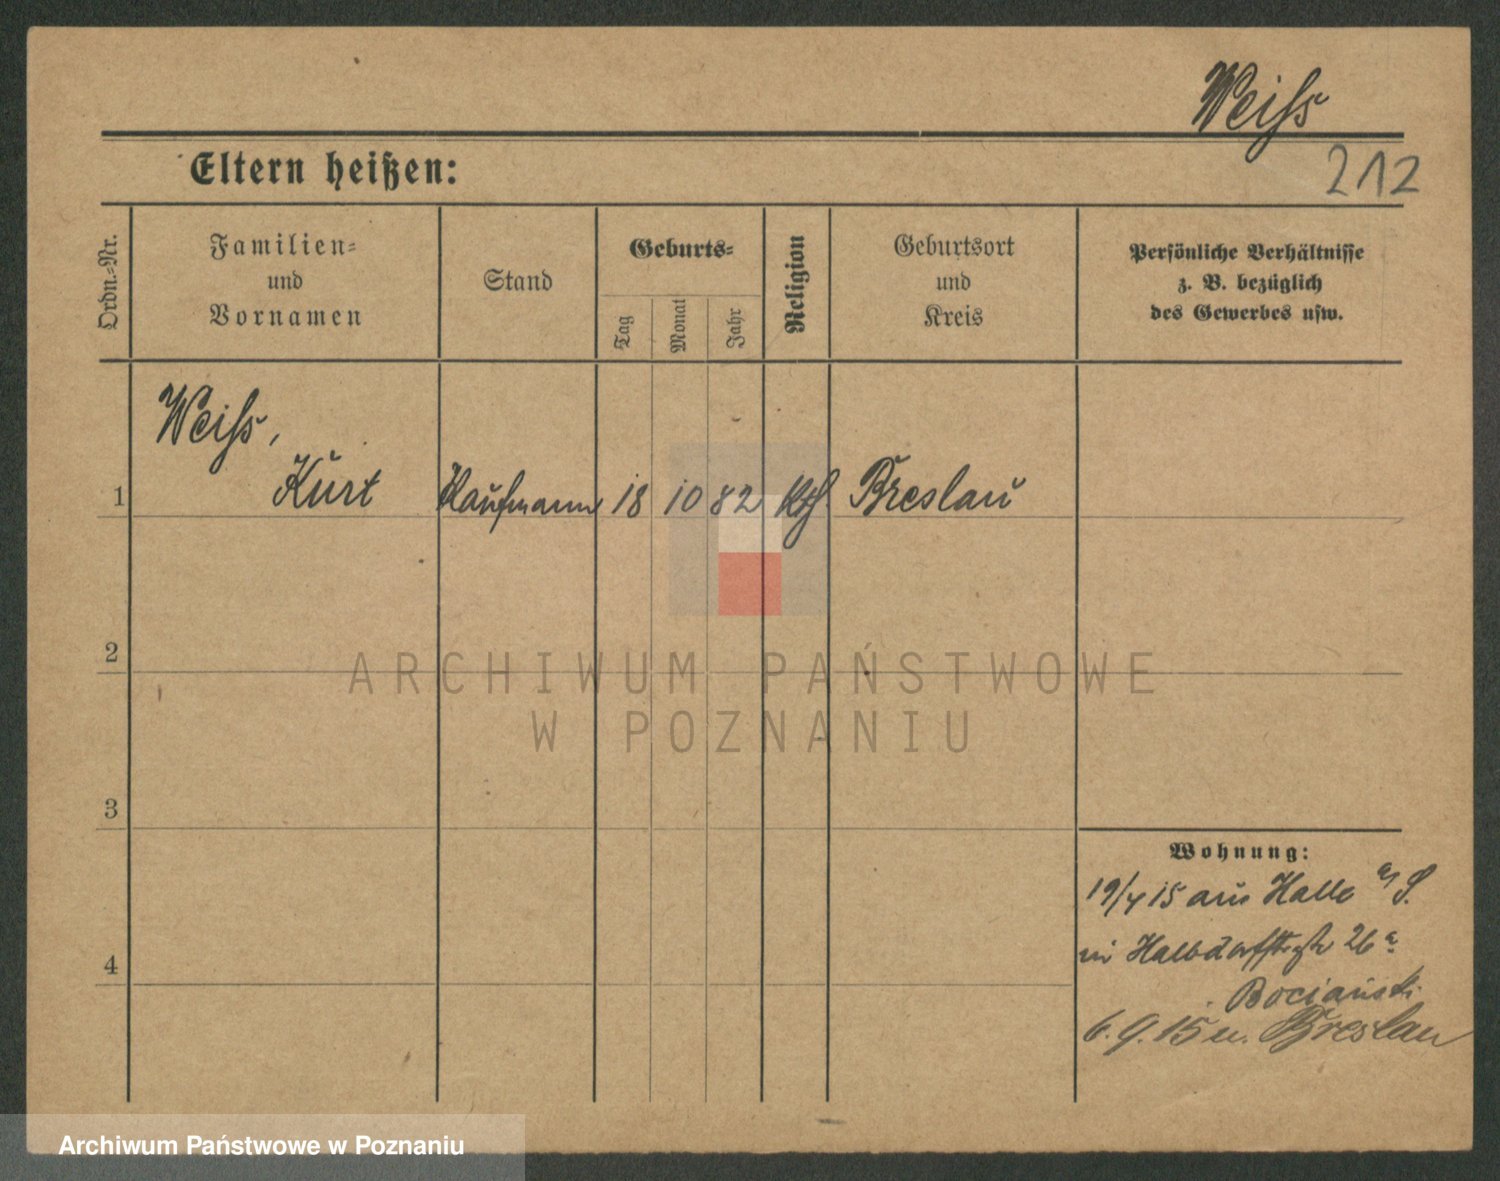 Weiss
Eltern heißen:
212
Ordn.-Nr.
Familien-
und
Vornamen
Stand
Geburts-
Tag
Monat
Jahr
Religion
Geburtsort
und
Kreis
Persönliche Verhältnisse
z. B. bezüglich
des Gewerbes usw.
Weiss,
1 Kurt Kaufmann 18 10 82 Kth. Breslau
2
3
4
Wohnung:
19/4 15 aus Halle a/S.
in Halbdorfstr 26 a
Bociański
6.9.15 n. Breslau
ARCHIWUM PAŃSTWOWE
W POZNANIU
Archiwum Państwowe w Poznaniu